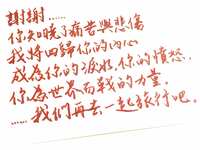 謝謝……
你知曉了痛苦與悲傷
我將回歸你的內心
成為你的淚水，你的憤怒，
你為世界而戰的力量。
……我們再去一起旅行吧。